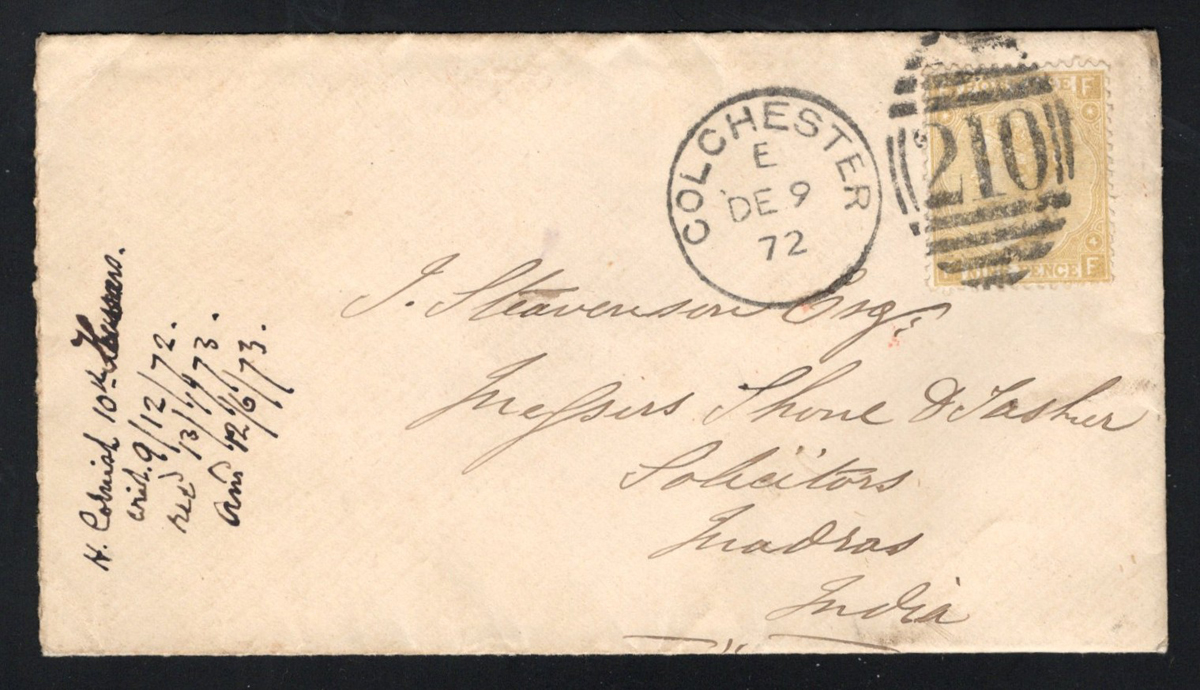 COLCHESTER
E
DE 9
72
210
F
NINE PENCE
F
J. Steavenson Esqr.
Messers Shone & Tasker
Solicitors
Madras
India
H. Cornish 10th Hussars.
writ. 9/12/72.
recd 13/1/73.
Ansd 12/6/73.